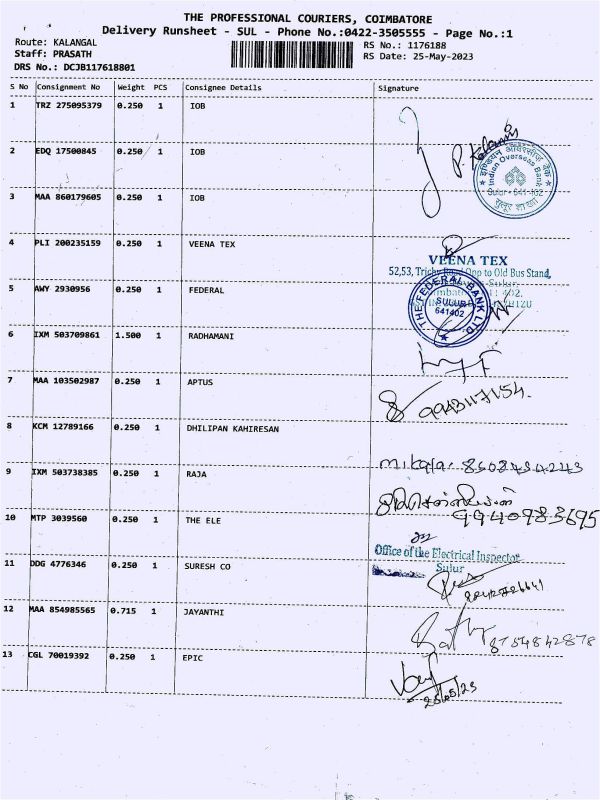 THE PROFESSIONAL COURIERS, COIMBATORE
Delivery Runsheet - SUL - Phone No.:0422-3505555 - Page No.:1
Route: KALANGAL RS No.: 1176188
Staff: PRASATH RS Date: 25-May-2023
DRS No.: DCJB117618801
S No Consignment No Weight PCS Consignee Details Signature
1 TRZ 275095379 0.250 1 IOB
2 EDQ 17500845 0.250 1 IOB
इण्डियन ओवरसीज़ बैंक
Indian Overseas Bank
Sulur - 641 402
सुलूर शाखा
3 MAA 860179605 0.250 1 IOB
4 PLI 200235159 0.250 1 VEENA TEX
VEENA TEX
52,53, Trichy Road Opp to Old Bus Stand,
5 AWY 2930956 0.250 1 FEDERAL
THE FEDERAL BANK LTD.
SULUR
641402
6 IXM 503709861 1.500 1 RADHAMANI
7 MAA 103502987 0.250 1 APTUS
9943117154.
8 KCM 12789166 0.250 1 DHILIPAN KAHIRESAN
9 IXM 503738385 0.250 1 RAJA
10 MTP 3039560 0.250 1 THE ELE
9940983695
Office of the Electrical Inspector
Sulur
11 DDG 4776346 0.250 1 SURESH CO
12 MAA 854985565 0.715 1 JAYANTHI
8754842878
13 CGL 70019392 0.250 1 EPIC
25/05/23